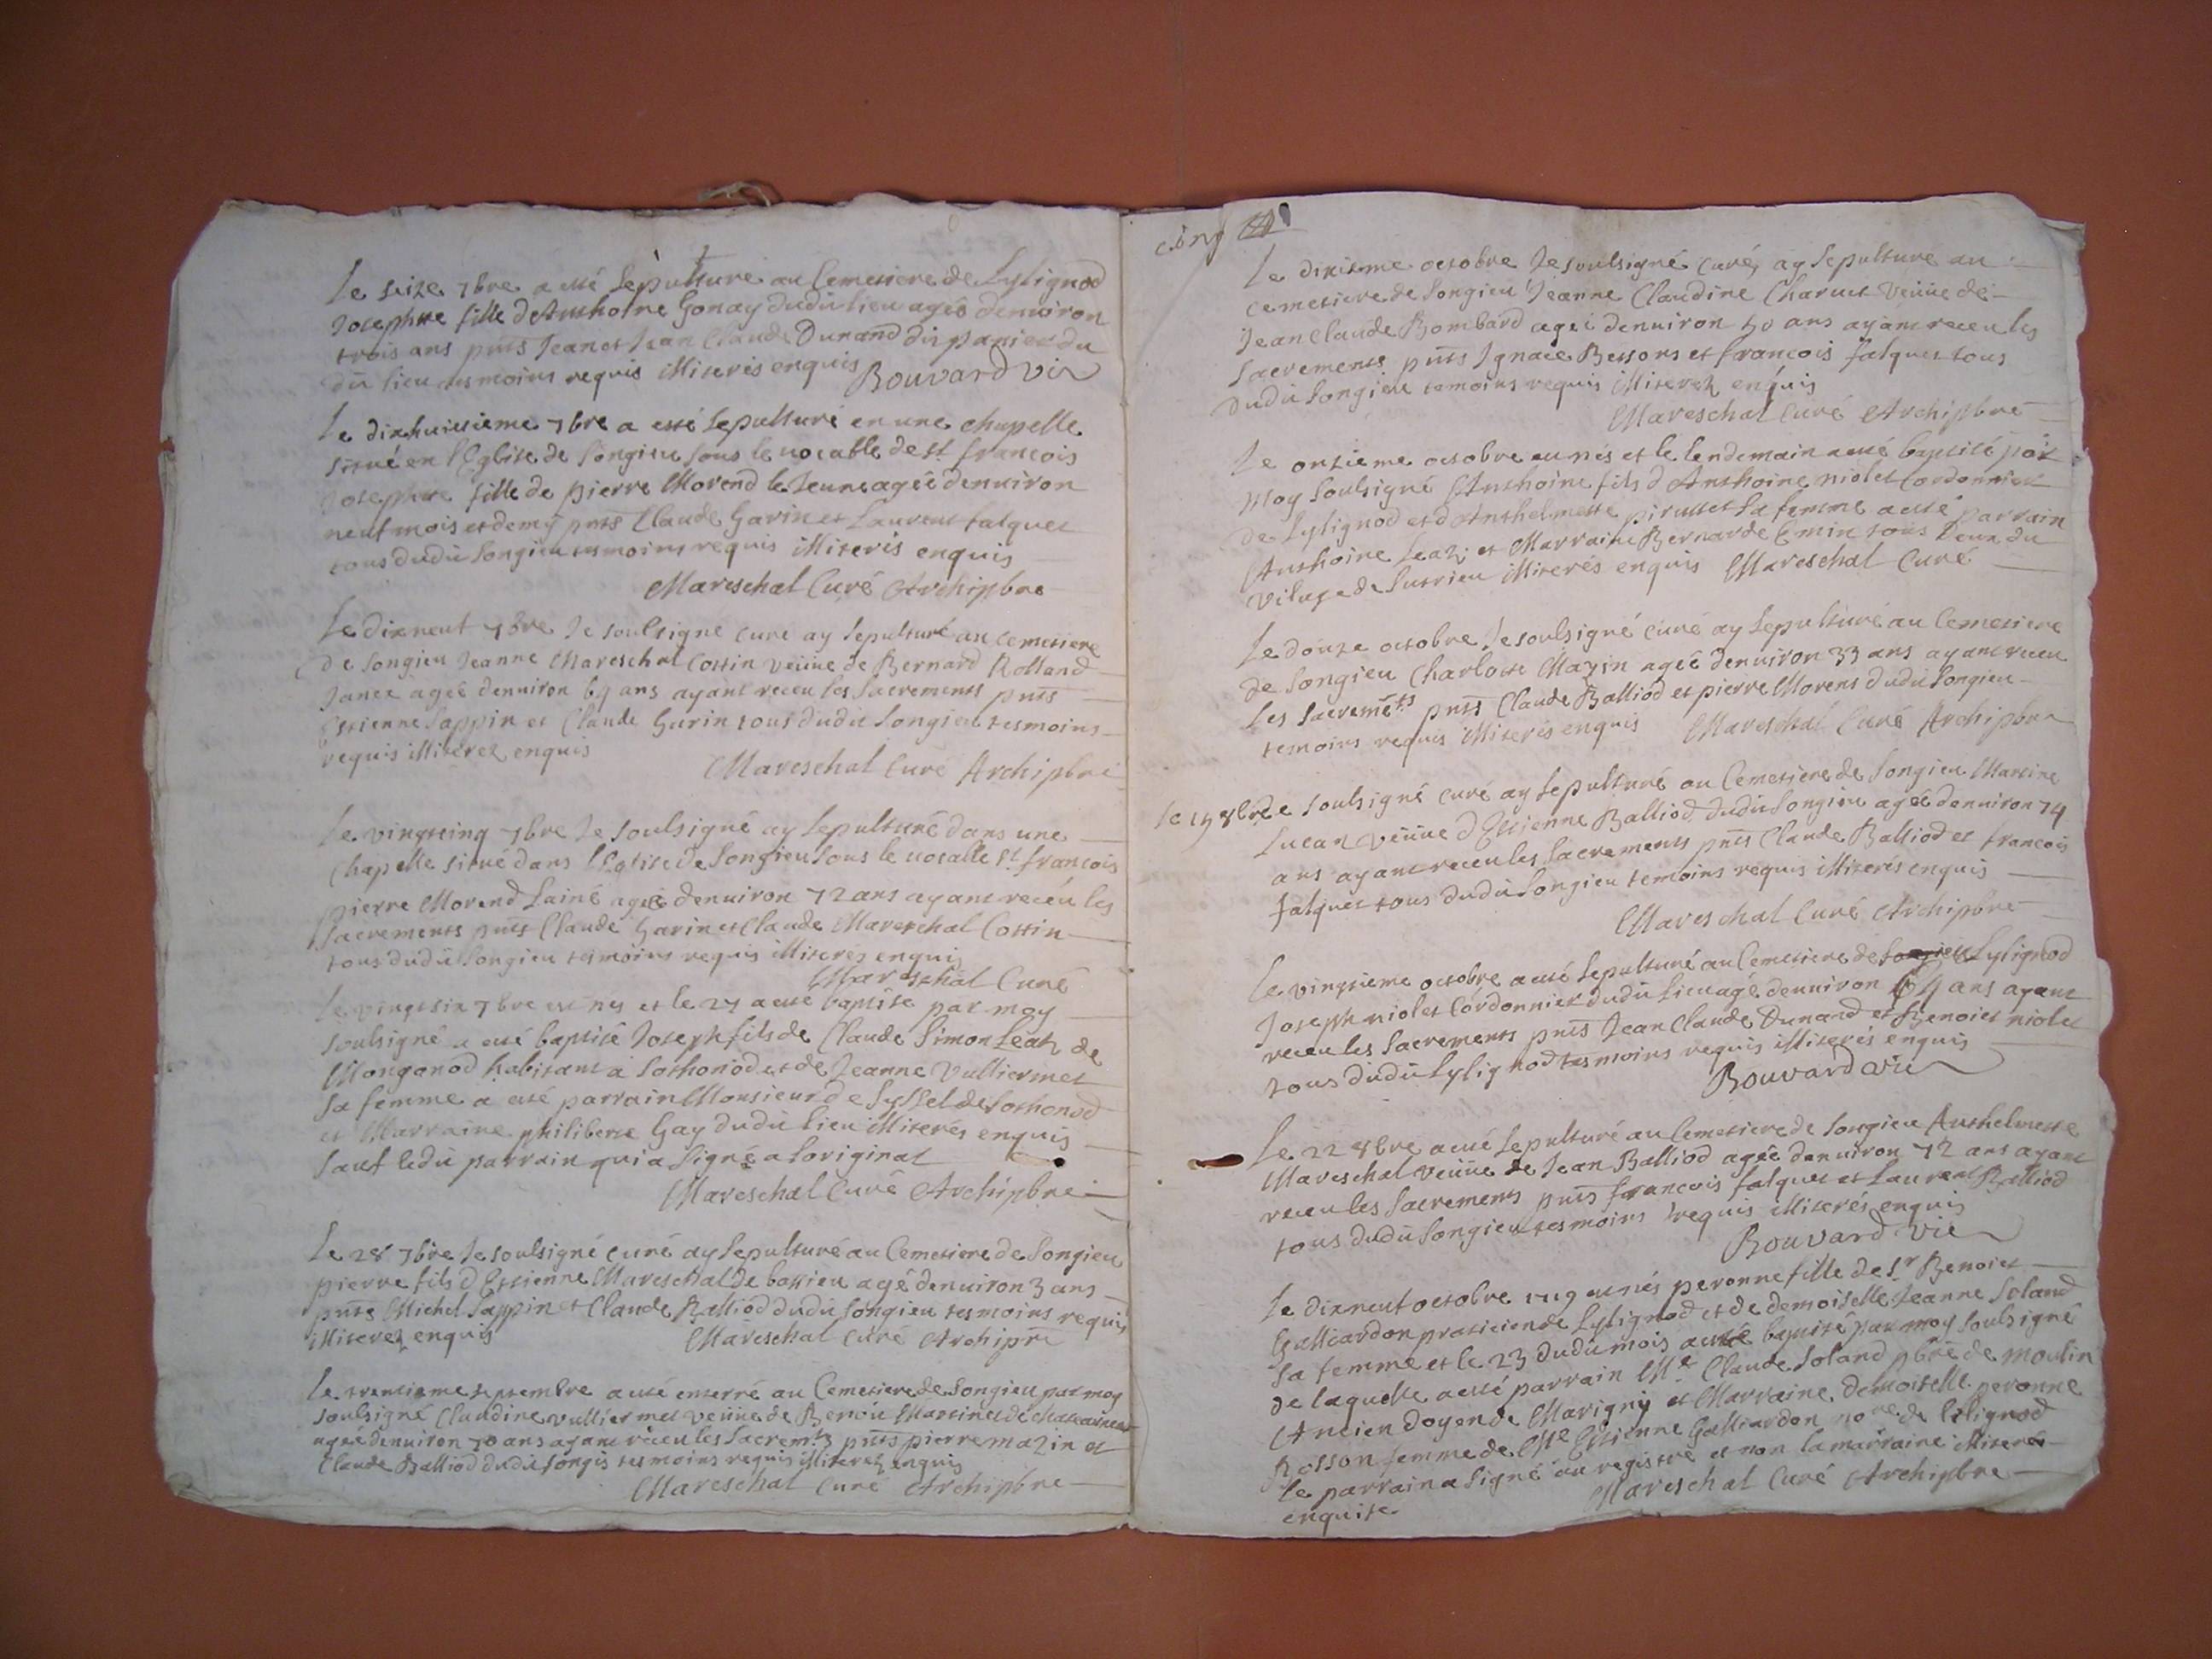 Le seize 7bre a esté sepulturé au Cemetiere de Lylignod
Josephte fille d'Anthoine Gonay dudit lieu agée denuiron
trois ans pnts Jean et Jean Claude Dunand dit panier du
dit lieu tesmoins requis illiterés enquis Bouvard vic
Le dixhuitieme 7bre a esté sepulturé en une chapelle
situé en l'Eglise de Songieu sous le vocable de st francois
Josephte fille de pierre Morend le Jeune agée denuiron
neuf mois et demÿ pnts Claude Garin et Laurent falquet
tous dudit Songieu tesmoins requis illiterés enquis
Mareschal Curé Archipbre
Le dixneuf 7bre Je soulsigné curé ay sepulturé au cemetiere
de Songieu Jeanne Mareschal Cottin veüue de Bernard Rolland
Janee agée denuiron 69 ans ayant receu les sacrements pnts
Estienne Sappin et Claude Garin tous dudit Songieu tesmoins
requis illiterez enquis
Mareschal Curé Archipbre
Le vingtcinq 7bre Je soulsigné ay sepulturé dans une
Chapelle situé dans l'Eglise de Songieu sous le vocable st francois
pierre Morend lainé agée denuiron 72 ans ayant recéu les
sacrements pnts Claude Garin et Claude Mareschal Cottin
tous dudit Songieu tesmoins requis illiterés enquis
Mareschal Curé
Le vingtsix 7bre est nés et le 27 a esté baptisé par moy
soulsigné a esté baptisé Joseph fils de Claude Simon Leaz de
Monganod habitant a Sothonod et de Jeanne Vulliermet
sa femme a esté parrain Monsieur de Syssel de Sothonod
et Marraine philiberte Gay dudit lieu illiterés enquis
sauf ledit parrain qui a signé a loriginal
Mareschal Curé Archipbre
Le 28 7bre Je soulsigné curé ay sepulturé au Cemetiere de Songieu
pierre fils d'Estienne Mareschal de bassieu agé denuiron 3 ans
pnts Michel Sappin et Claude Balliod dudit Songieu tesmoins requis
illiterez enquis Mareschal Curé Archipre
Le trentieme septembre a esté enterré au Cemetiere de Songieu par moy
soulsigné Claudine vulliermet veüue de Benoit Martinet de
agée denuiron 70 ans ayant réceu les sacremts pnts pierre mazin et
Claude Balliod dudit songis tesmoins requis illiterez enquis
Mareschal Curé Archipbre
cinq
Le dixieme octobre Je soulsigné curé ay sepulturé au
cemetiere de Songieu Jeanne Claudine Charuet veüue de
Jean Claude Bombard agée denuiron 50 ans ayant receu les
sacrements pnts Ignace Bessons et francois falquet tous
dudit Songieu temoins requis illiterez enquis
Mareschal Curé Archipbre
Le onzieme octobre est nés et le lendemain a esté baptisé par
moy soulsigné Anthoine fils d'Anthoine niolet Cordonnier
de Lylignod et d'Anthelmette pirusset sa femme a esté parrain
Anthoine Leaz et Marraine Bernarde Emin tous deux du
vilage de Sutrieu illiterés enquis Mareschal Curé
Le douze octobre Je soulsigné curé ay sepulturé au Cemetiere
de Songieu Charlote Mazin agée denuiron 33 ans ayant receu
les sacremets pnts Claude Balliod et pierre Morens dudit Songieu
temoins requis illiterés enquis Mareschal Curé Archipbre
Le 19 8bre Je soulsigné curé ay sepulturé au Cemetiere de Songieu Martine
Lucan veüue d'Estienne Balliod dudit Songieu agée denuiron 74
ans ayant receu les sacrements pnts Claude Balliod et francois
falquet tous dudit Songieu temoins requis illiterés enquis
Mareschal Curé Archipbre
Le vingtieme octobre a esté sepulturé au Cemetiere de Songieu Lylignod
Joseph niolet Cordonnier dudit lieu agé denuiron 69 ans ayant
receu les sacrements pnts Jean Claude Dunand et Benoict niolet
tous dudit Lylignod tesmoins requis illiterés enquis
Bouvard vic
Le 22 8bre a esté sepulturé au Cemetiere de Songieu Anthelmette
Mareschal veüue de Jean Balliod agée denuiron 72 ans ayant
receu les sacrements pnts francois falquet et Laurent Balliod
tous dudit Songieu tesmoins requis illiterés enquis
Bouvard vic
Le dixneuf octobre 1719 est nés peronne fille de sr Benoict
Galliardon praticien de Lylignod et de demoiselle Jeanne Soland
sa femme et le 23 dudit mois a esté baptisé par moy soulsigné
de laquelle a esté parrain Mre Claude Soland pbre de moulin
Ancien doyen de Marigny et Marraine demoiselle peronne
Rosson femme de Me Estienne Galliardon nore de lilignod
le parrain a signé au registre et non la marraine illiteré
enquise. Mareschal Curé Archipbre